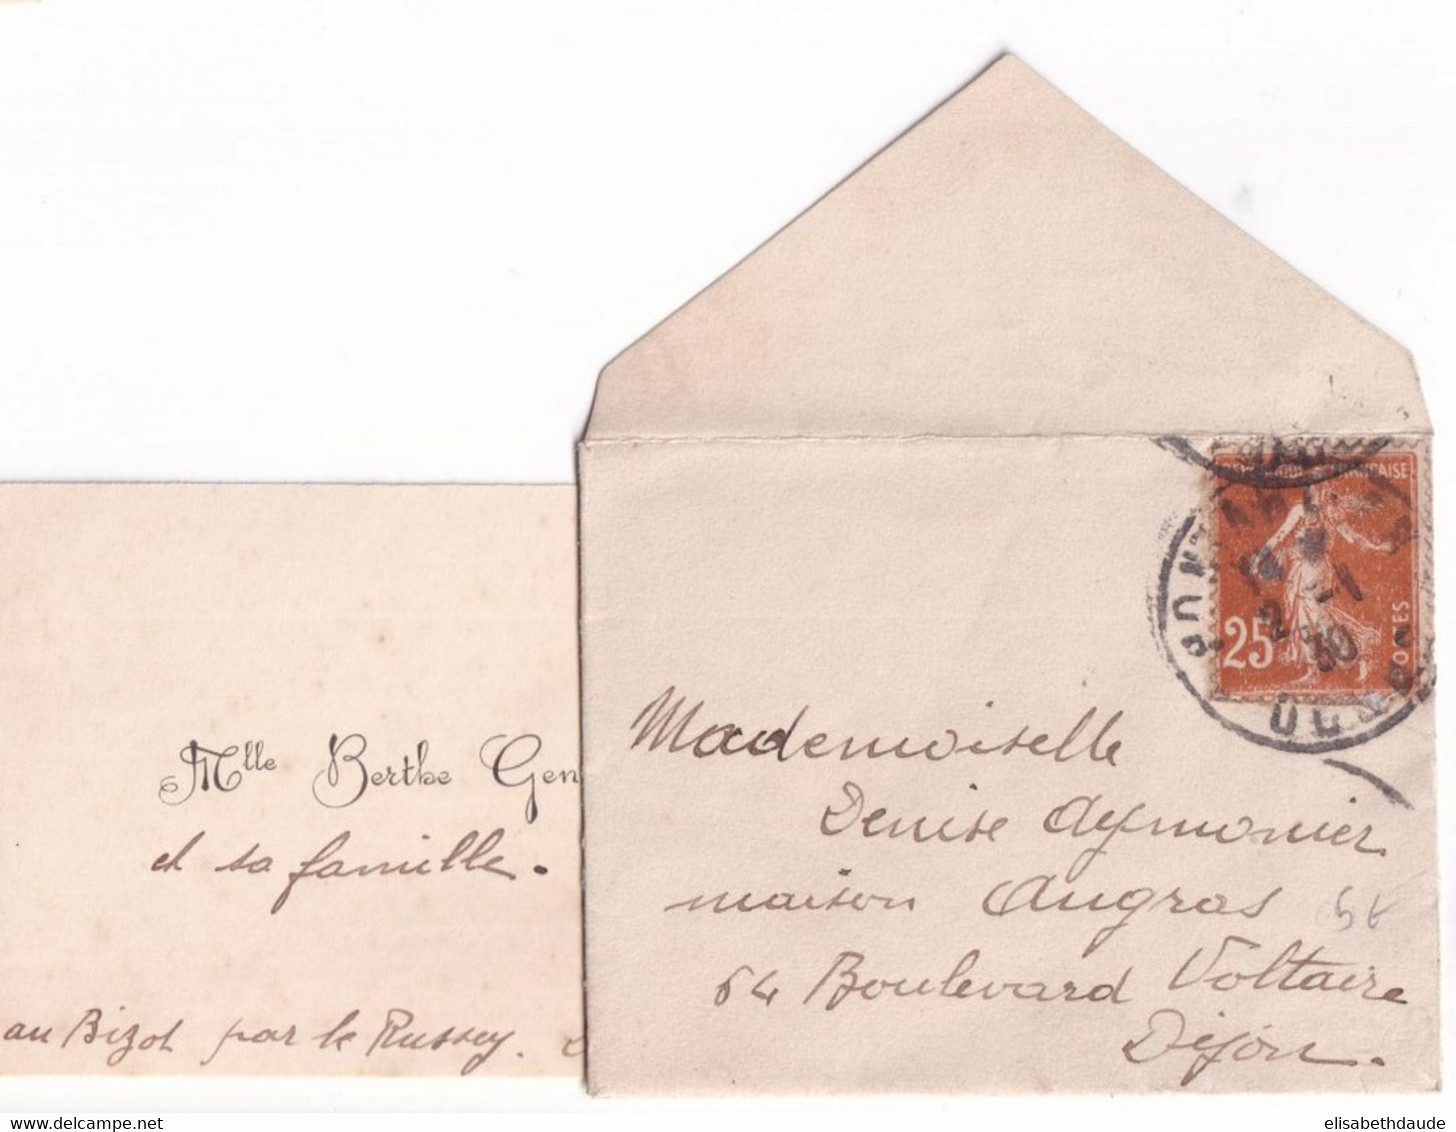 Mlle Berthe Gen
et sa famille.
au Bizot par le Russey.
FRANÇAISE
25
POSTES
2 -1
30
Mademoiselle
Denise Aymonier
maison Augras
64 Boulevard Voltaire
Dijon.
delcampe.net
elisabethdaude